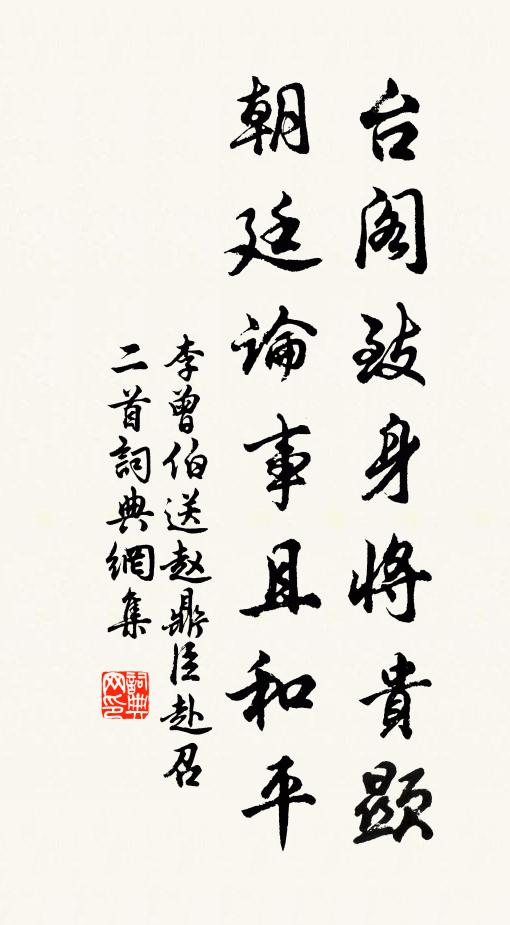 台阁致身將貴顯
朝廷論事且和平
李曾伯送赵鼎臣赴召
二首詞典網集
詞典网印